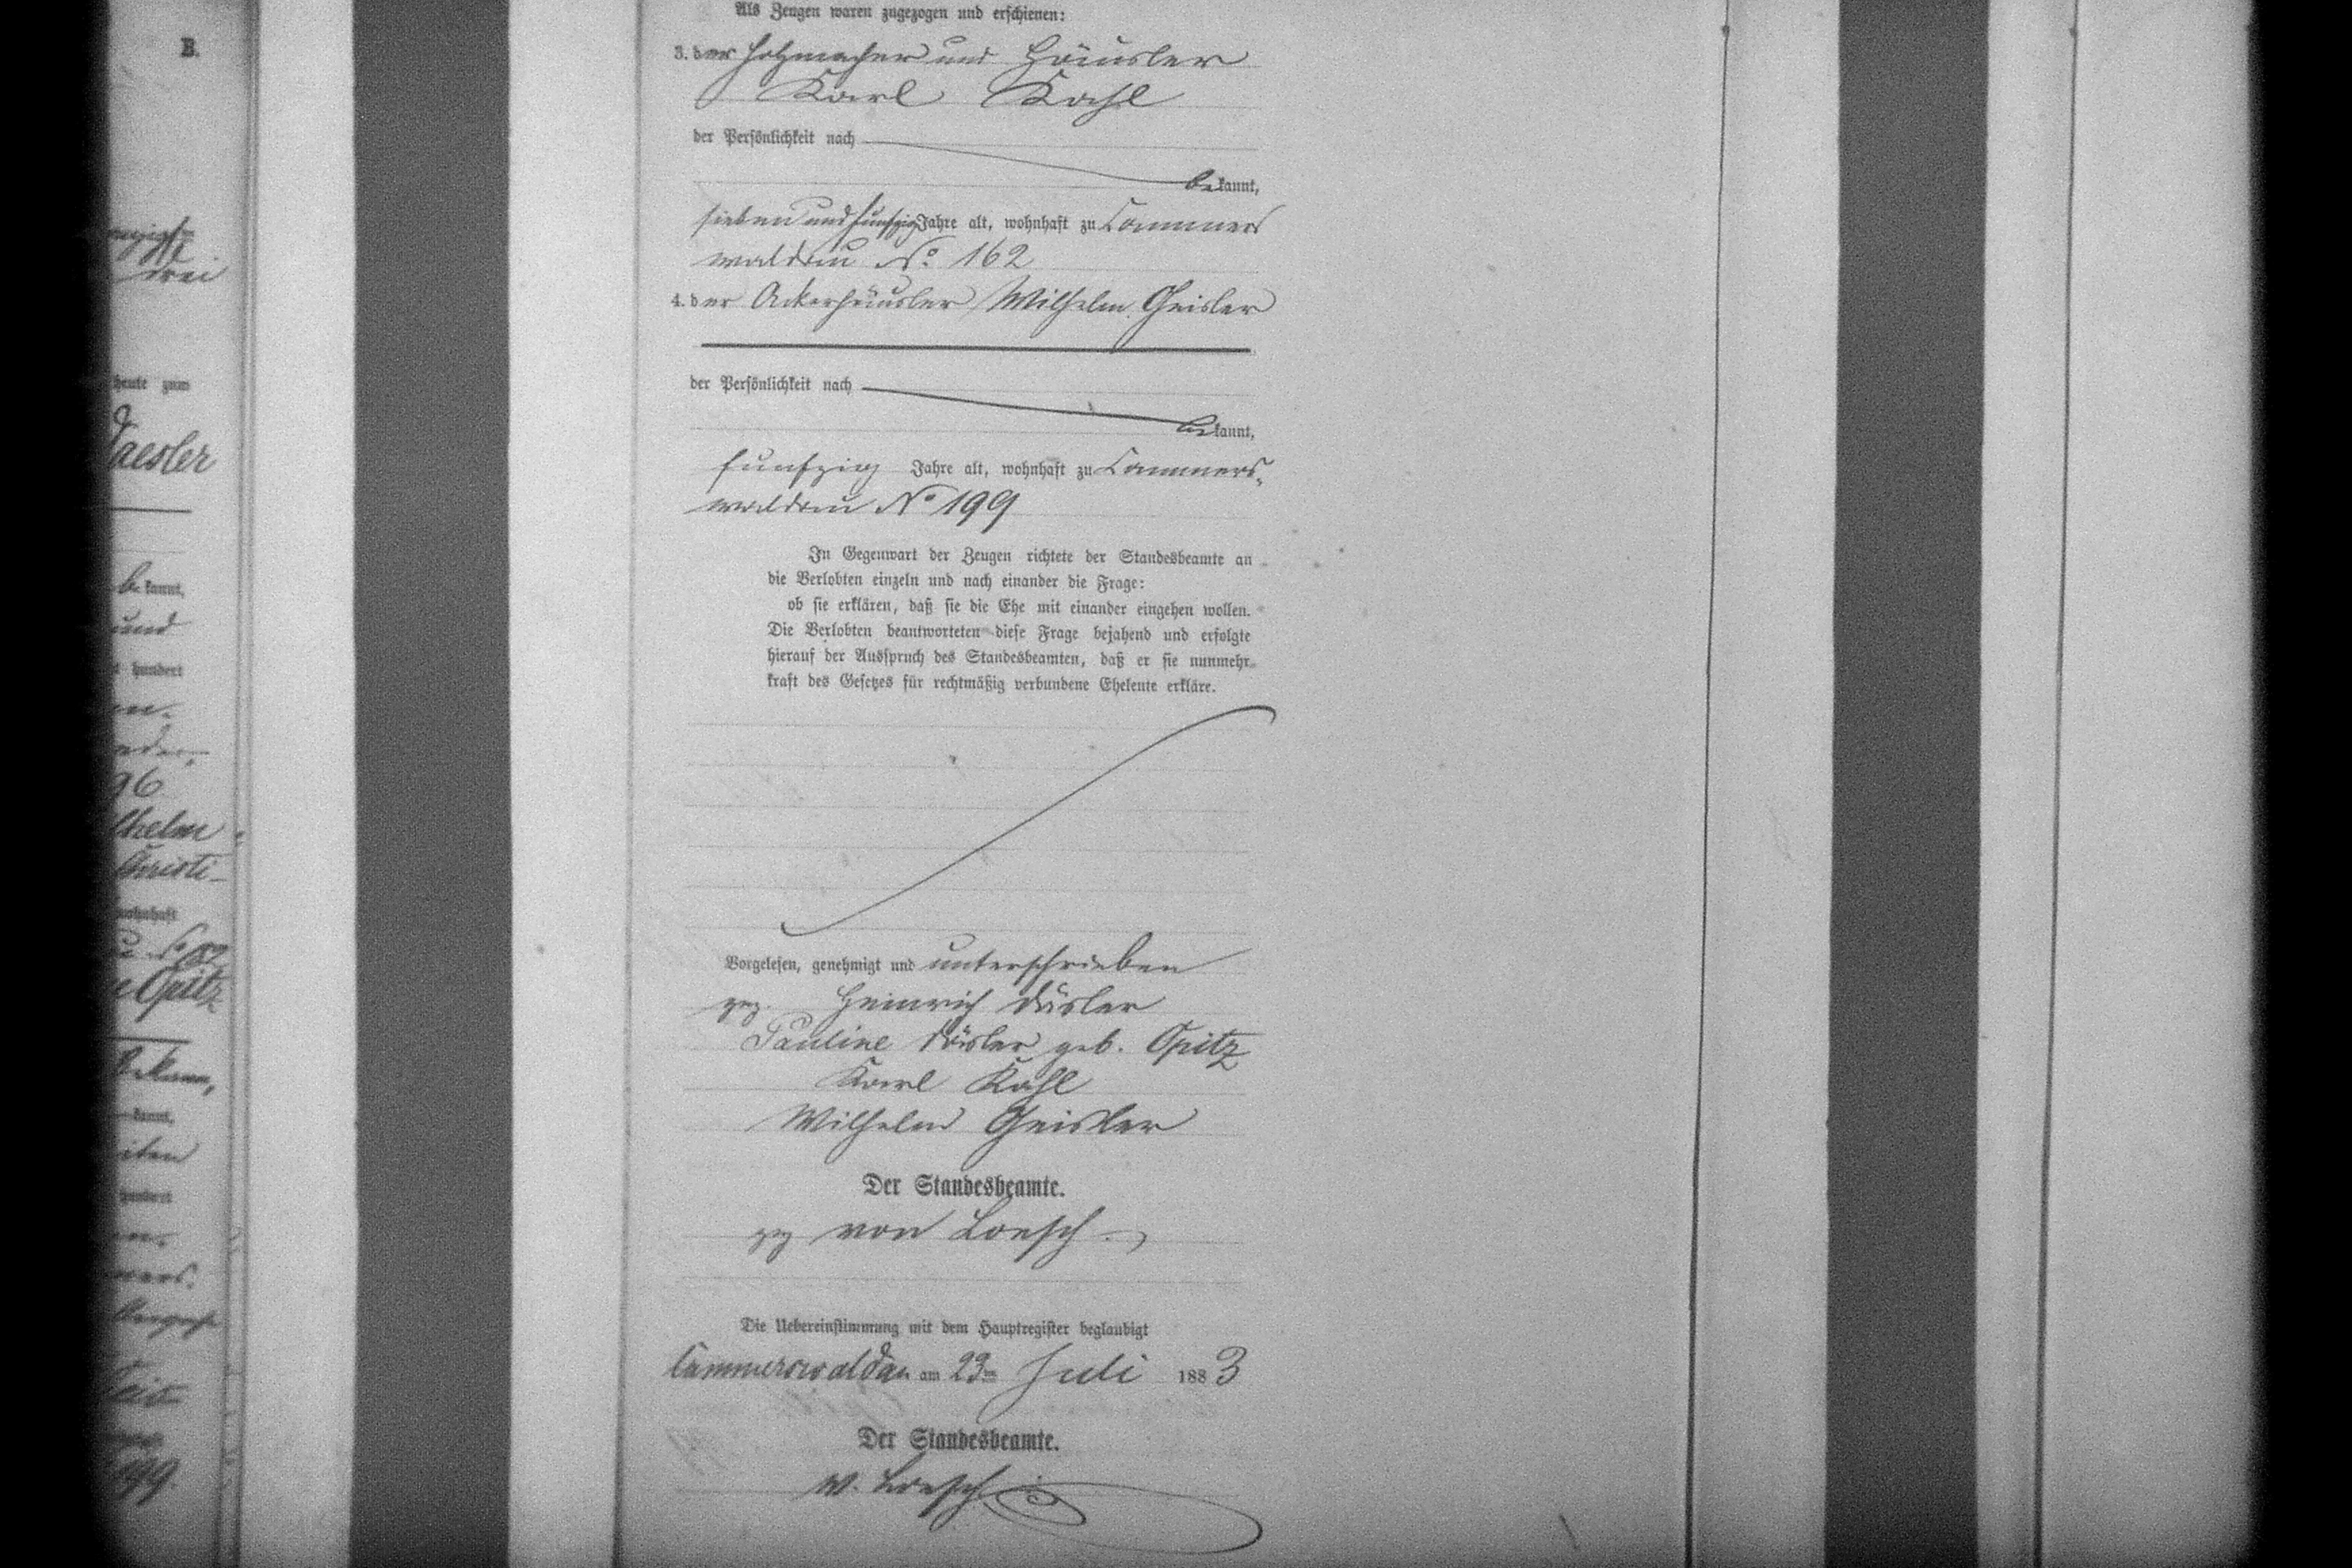 B.
drei
heute zum
Daesler
bekannt,
und
hundert
96
Christi-
wohnhaft
Opitz
kannt,
hundert
199.
Als Zeugen waren zugezogen und erschienen:
3. der Holzmacher und Häusler
Karl Kahl
der Persönlichkeit nach
bekannt,
sieben und funfzig Jahre alt, wohnhaft zu Cammers
waldau No 162
4. der Ackerhäusler Wilhelm Geisler
der Persönlichkeit nach
bekannt,
funfzig Jahre alt, wohnhaft zu Cammers-
waldau No 199
In Gegenwart der Zeugen richtete der Standesbeamte an
die Verlobten einzeln und nach einander die Frage:
ob sie erklären, daß sie die Ehe mit einander eingehen wollen.
Die Verlobten beantworteten diese Frage bejahend und erfolgte
hierauf der Ausspruch des Standesbeamten, daß er sie nunmehr
kraft des Gesetzes für rechtmäßig verbundene Eheleute erkläre.
Vorgelesen, genehmigt und unterschrieben
gez. Heinrich Däsler
Pauline Däsler geb. Opitz
Karl Kahl
Wilhelm Geisler
Der Standesbeamte.
gez von Loesch
Die Uebereinstimmung mit dem Hauptregister beglaubigt
Cammerswaldau am 23ten Juli 1883
Der Standesbeamte.
v. Loesch